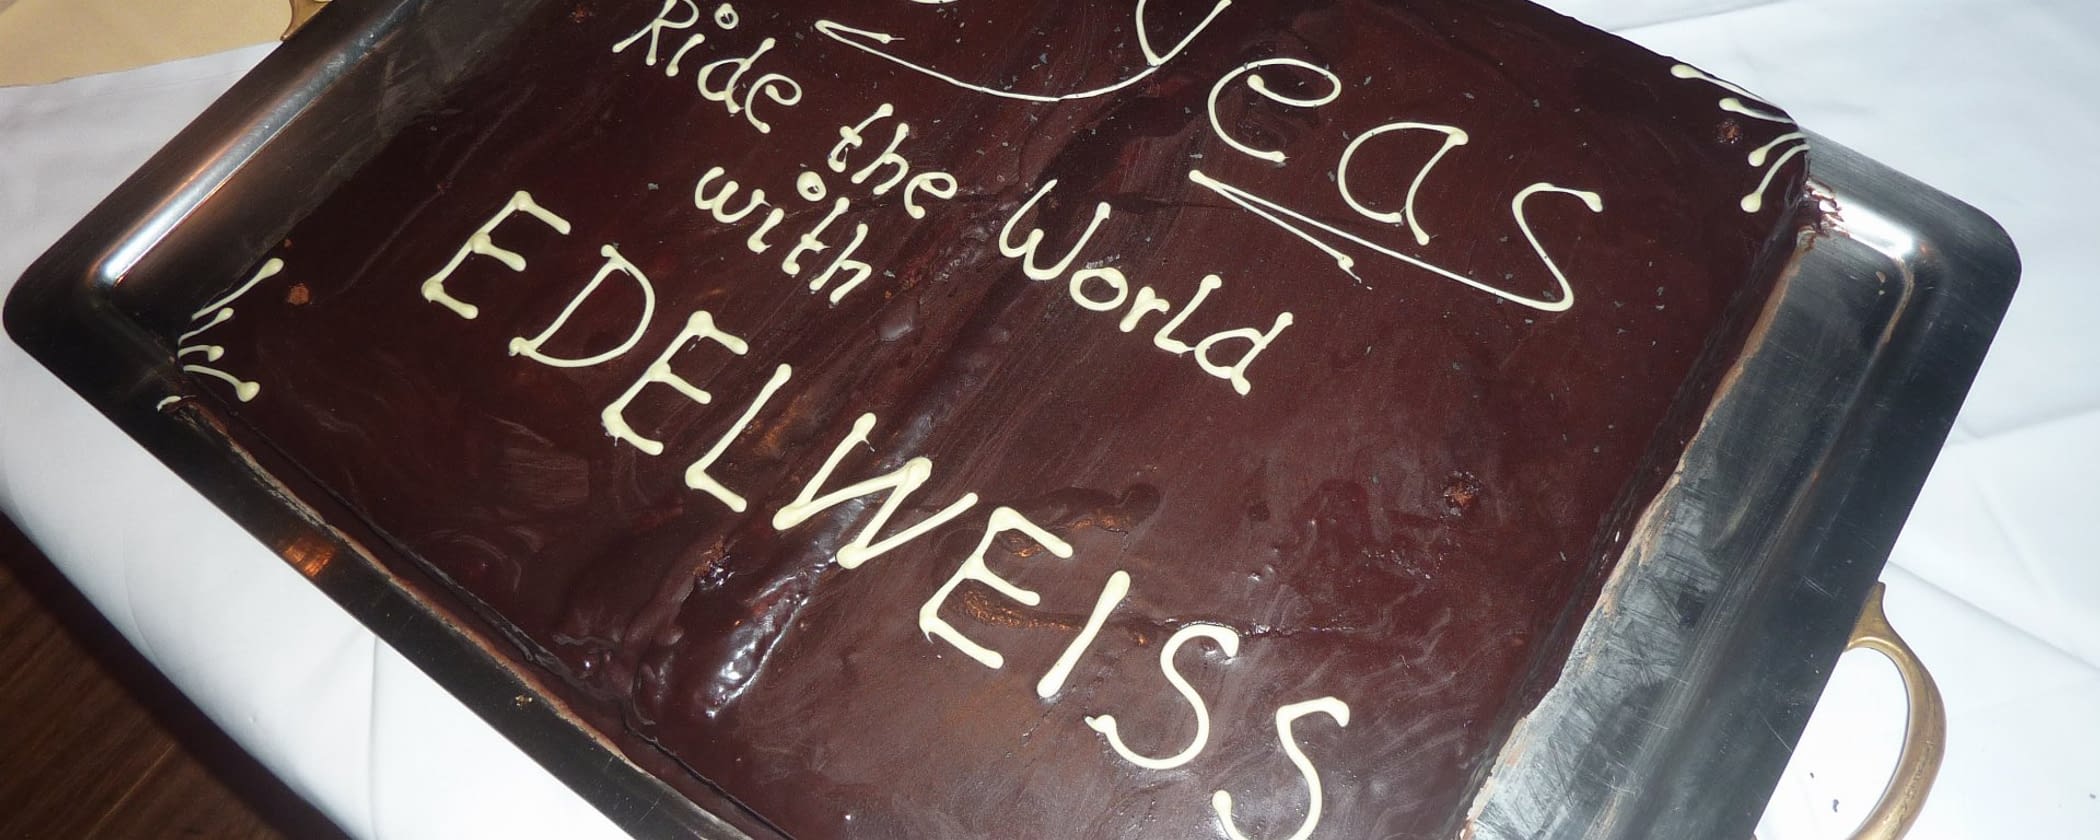 yeas
Ride the World
with
EDELWEISS